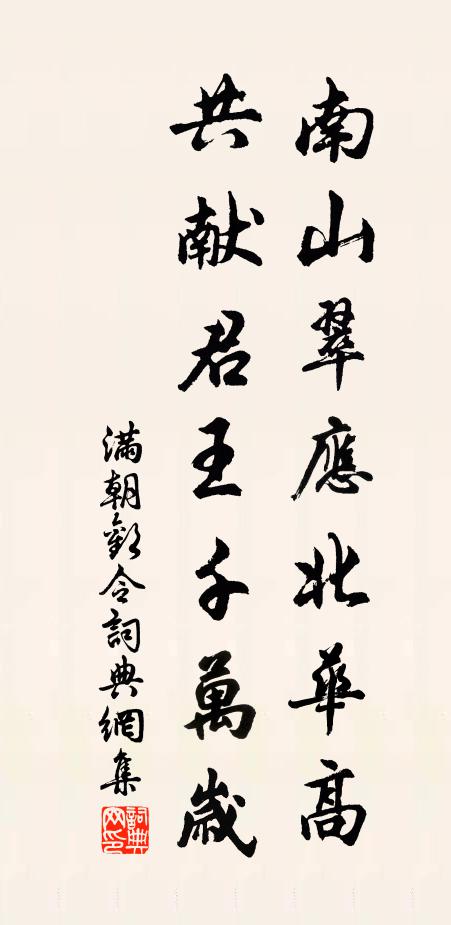 南山翠應北華高
共献君王千萬歲
滿朝歡令詞典網集
詞典網印